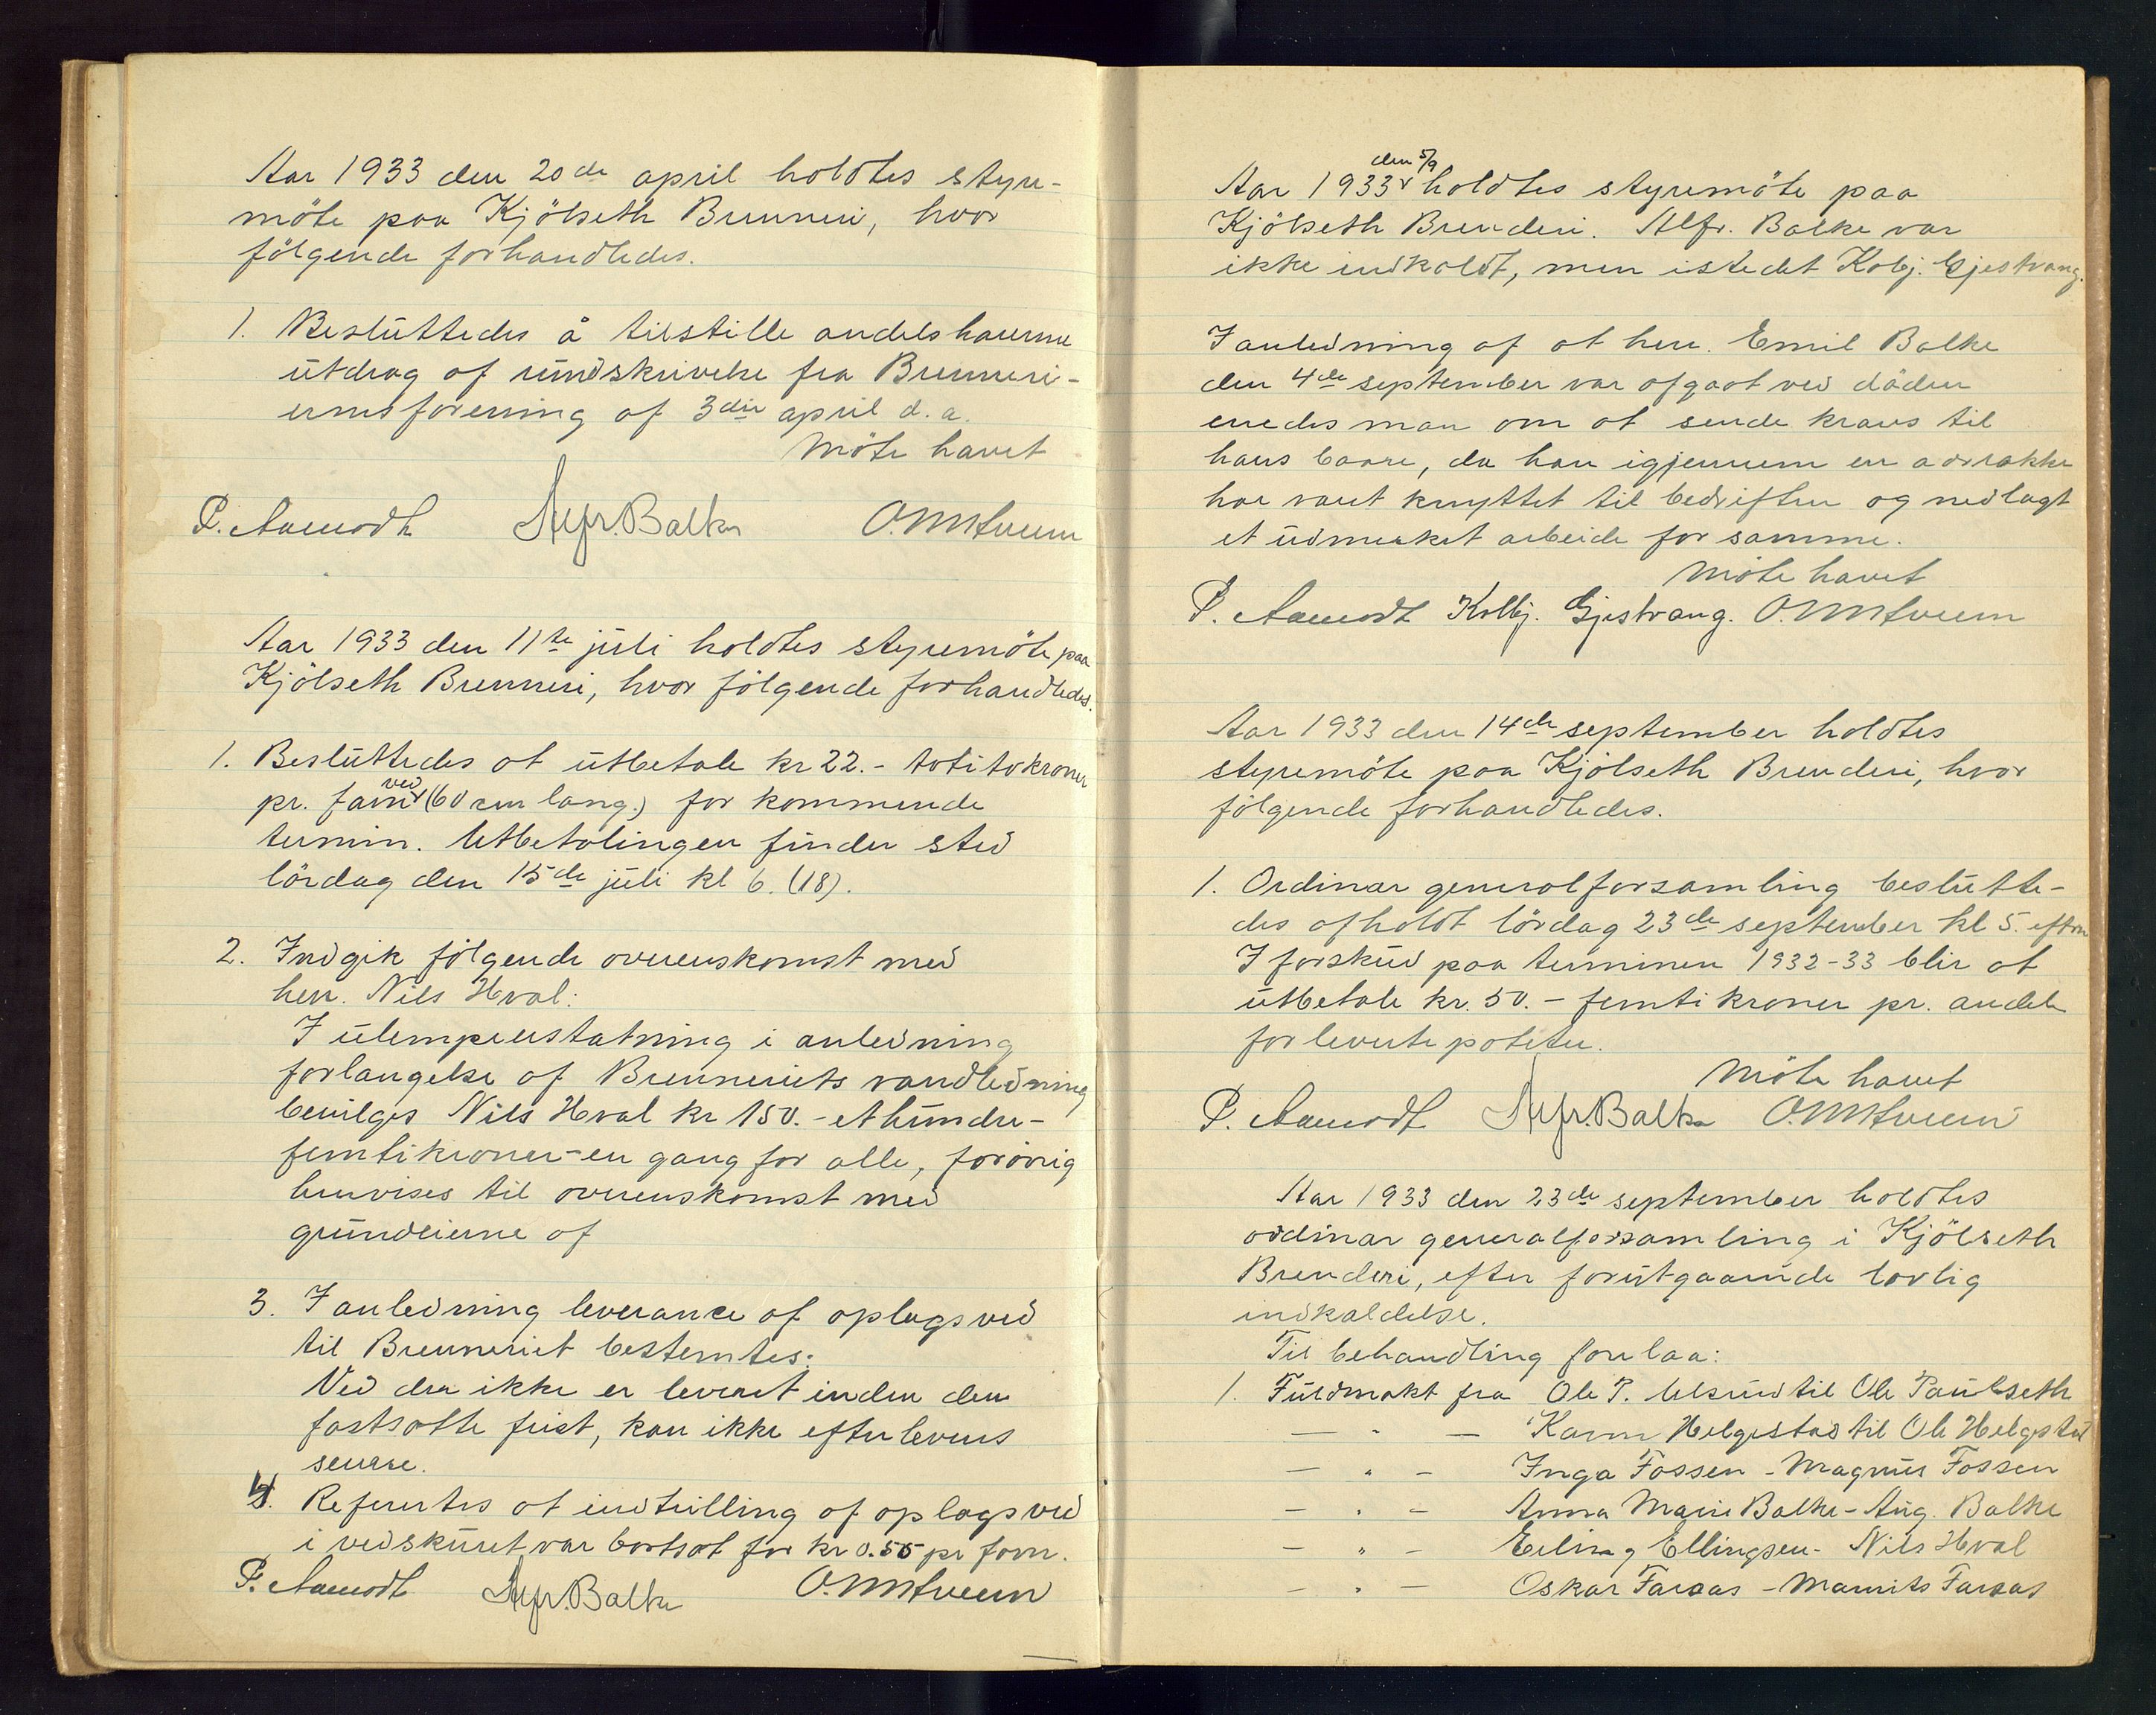 Aar 1933 den 20de april holdtes styre-
möte paa Kjölseth Brenneri, hvor
fölgende forhandledes.
1. Besluttedes å tilstille andelshaverne
utdrag af rundskrivelse fra Brenneri-
ernes forening af 3die april d.a.
Möte hævet
P. Aamodt Alfr. Balke O. Mstuen
Aar 1933 den 11te juli holdtes styremöte paa
Kjölseth Brenneri, hvor fölgende forhandledes.
1. Besluttedes at utbetale kr 22.- totitokroner
pr. favn ved (60 cm lang.) for kommende
termin. Utbetalingen finder sted
lördag den 15de juli kl 6. (18).
2. Indgik fölgende overenskomst med
herr. Nils Hval:
I ulemperstatning i anledning
forlængelse af Brenneriets vandledning
bevilges Nils Hval kr 150.- ethundre-
femtikroner - en gang for alle, forövrig
henvises til overenskomst med
grundeierne af
3. I anledning leveranse af oplagsved
til Brenneriet bestemtes:
Ved der ikke er leveret inden den
fastsatte frist, kan ikke efterleveres
senere.
4. Refertes at indtrilling af oplagsved
i vedskuret var bortsat for kr 0.55 pr favn.
P. Aamodt Alfr. Balke O. Mstuen
Aar 1933 den 5/9 holdtes styremöte paa
Kjölseth Brenderi. Alfr. Balke var
ikke indkaldt, men istedet Kolbj. Gjestvang.
I anledning af at herr. Emil Balke
den 4de september var afgaat ved döden
enedes man om at sende krans til
hans baare, da han igjennem en aarrække
har været knyttet til bedriften og nedlagt
et udmerket arbeide for samme.
Möte hævet
P. Aamodt Kolbj. Gjestvang. O. Mstuen
Aar 1933 den 14de september holdtes
styremöte paa Kjölseth Brenderi, hvor
fölgende forhandledes.
1. Ordinær generalforsamling beslutte-
des afholdt lördag 23de september kl 5. efterm
I forskud paa terminen 1932-33 blir at
utbetale kr. 50.- femti kroner pr. andel
for leverte poteter.
Möte hævet
P. Aamodt Alfr. Balke O. Mstuen
Aar 1933 den 23de september holdtes
ordinær generalforsamling i Kjölseth
Brenderi, efter forutgaaende lovlig
indkaldelse.
Til behandling forelaa:
1. Fuldmakt fra Ole P. Ulsrud til Ole Paulseth
— " — Karen Helgestad til Ole Helgestad
— " — Inga Fossen - Magnus Fossen
— " — Anna Marie Balke - Aug. Balke
— " — Erling Ellingsen - Nils Hval
— " — Oskar Faraas - Mauritz Faraas